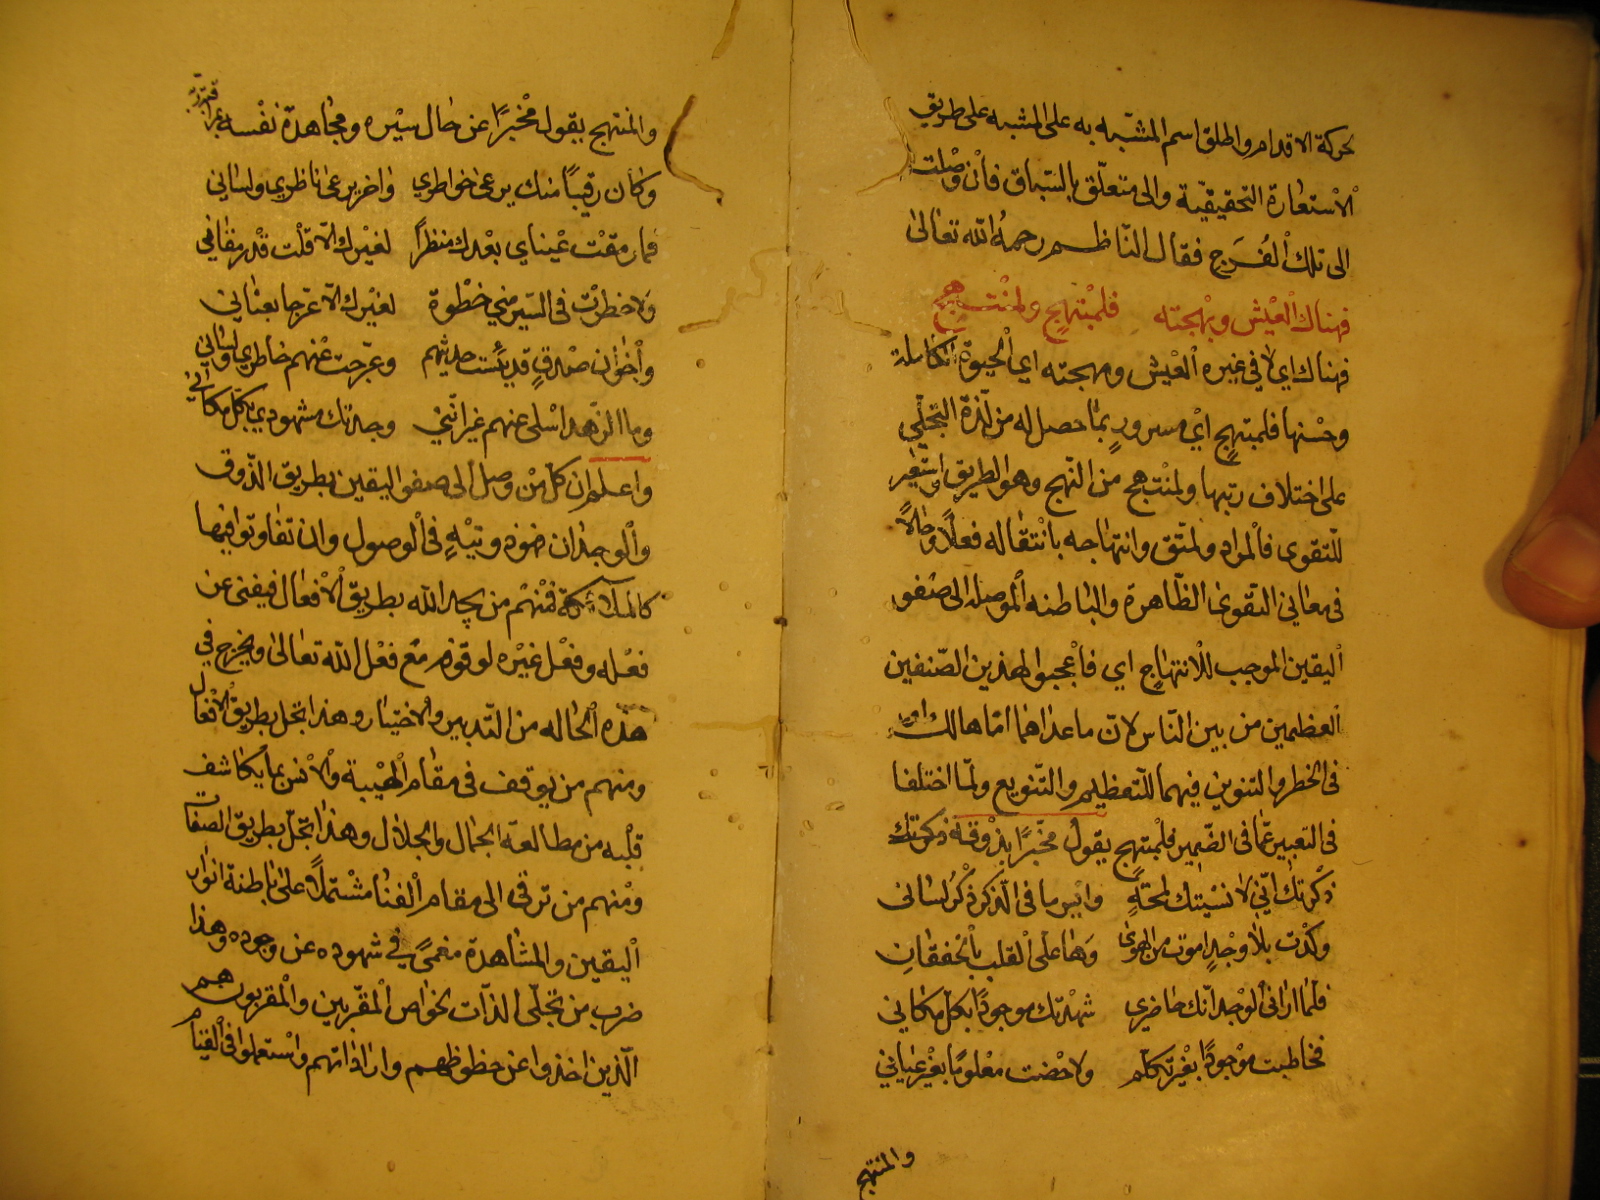 لحركة الاقدام واطلق اسم المشبّه به على المشبه على طريق
الاستعارة التحقيقيّة والى متعلّق بالسّباق فان وصلت
الى تلك الفُرَج فقال النّاظم رحمهُ الله تعالىٰ
فهناك العيْش وبهْجته فلمبْتهجٍ ولمنْتهجٍ
فهناك اي لا في غيره العيْش وبهجته اي الحيوة الكاملة
وحسْنها فلمبتهجٍ ايْ مسرورٍ بما حصل له من لذّة التجلّي
على اختلاف رتبها ولمنْتهج من النّهج وهو الطريق واستعير
للتقوى فالمراد ولمتّق وانتهاجه بانتقاله فعلاً وحالاً
في معاني التقوى الظّاهرة والباطنه الموصلة الى صفو
اليقين الموجب للانتهاج اي فاعْجبوا لهذين الصّنفين
العظيمين من بين النّاس لانّ ما عداهما امّا هالك او
في الخطر والتنوين فيهما للتّعظيم والتّنويع ولمّا اختلفا
في التعبير عمّا في الضّمير فلمبْتهجٍ يقول مخْبرًا بذوقه ذكرتك
ذكرتك انّي لا نسيْتك لمحةً وايْسر ما في الذّكر ذكْرُ لسانى
وكدْت بلا وجْدٍ اموت من الهوىٰ وَهَامَ عَلى القلب بالخفقانِ
فلمّا ارانى الوجْد انّك حاضري شهدْتك موجودًا بكلّ مكاني
فخاطبت موْجودًا بغيْر تكلّم ولاحظت معْلومًا بغيْر عياني
والمنتهج
والمنتهج يقول مخْبرًا عن حال سيْره ومجاهدة نفْسه
وكان رقيبًا منك يرعى خواطري وآخر يرعى ناظري ولساني
فما رمقتْ عيْناي بعْدك منظرًا لغيْرك الّا قلْت قدْ رمقاني
ولا خطرتْ في السّير منّي خطْوة لغيْرك الّا عرّجا بعناني
واخوان صدقٍ قد سئمت حديثهم وعرّجت عنهم خاطري ولساني
وما الزّهد اسْلى عنهم غير انّني وجدتك مشهودي بكلّ مكاني
واعلم ان كلّ من وصل الى صفو اليقين بطريق الذّوق
والوجدان ... ورتبةٍ في الوصول وان تفاوتوا فيها
كالملائكة فمنْهم من يجد الله بطريق الافعال فيفنى عن
فعْله وفعْل غيْره لوقوفه مع فعْل الله تعالىٰ ويخرج في
هذه الحاله من التّدبير والاختيار وهذا تجلّ بطريق الافعال
ومنهم من يوقف في مقام الهيْبة والانس بما يكاشف
قلْبه من مطالعة الجمال والجلال وهذا تجلّ بطريق الصّفات
ومنْهم من ترقى الى مقام الفنا مشْتملاً على باطنه انوار
اليقين والمشاهدة مغمىً في شهوده عن وجوده وهذا
ضرب من تجلّى الذّات لخواص المقرّبين والمقربون هم
الّذين اخذوا عن حظوظهم واراداتهم واستعملوا في القيام